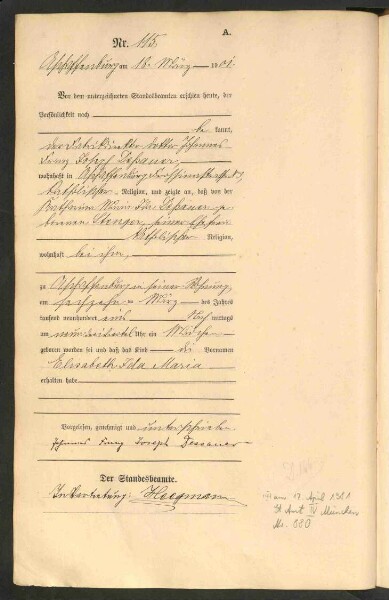 A.
Nr. 115.
Aschaffenburg am 18. März 1901.
Vor dem unterzeichneten Standesbeamten erschien heute, der
Persönlichkeit nach
be kannt,
der Johannes
Franz Joseph Dessauer,
wohnhaft in Aschaffenburg
katholischer Religion, und zeigte an, daß von der
Katharina Maria Ida Dessauer ge-
borenen Stenger, seiner Ehefrau
katholischer Religion,
wohnhaft bei ihm,
zu Aschaffenburg in seiner Wohnung,
am sechzehn März des Jahres
tausend neunhundert eins Nach mittags
um neun Uhr ein Mädchen
geboren worden sei und daß das Kind die Vornamen
Elisabeth Ida Maria
erhalten habe
Vorgelesen, genehmigt und unterschrieben
Johannes Franz Joseph Dessauer
Der Standesbeamte.
In Vertretung: Hegmann
am 17. April 1981
St Amt IV München
Nr. 880